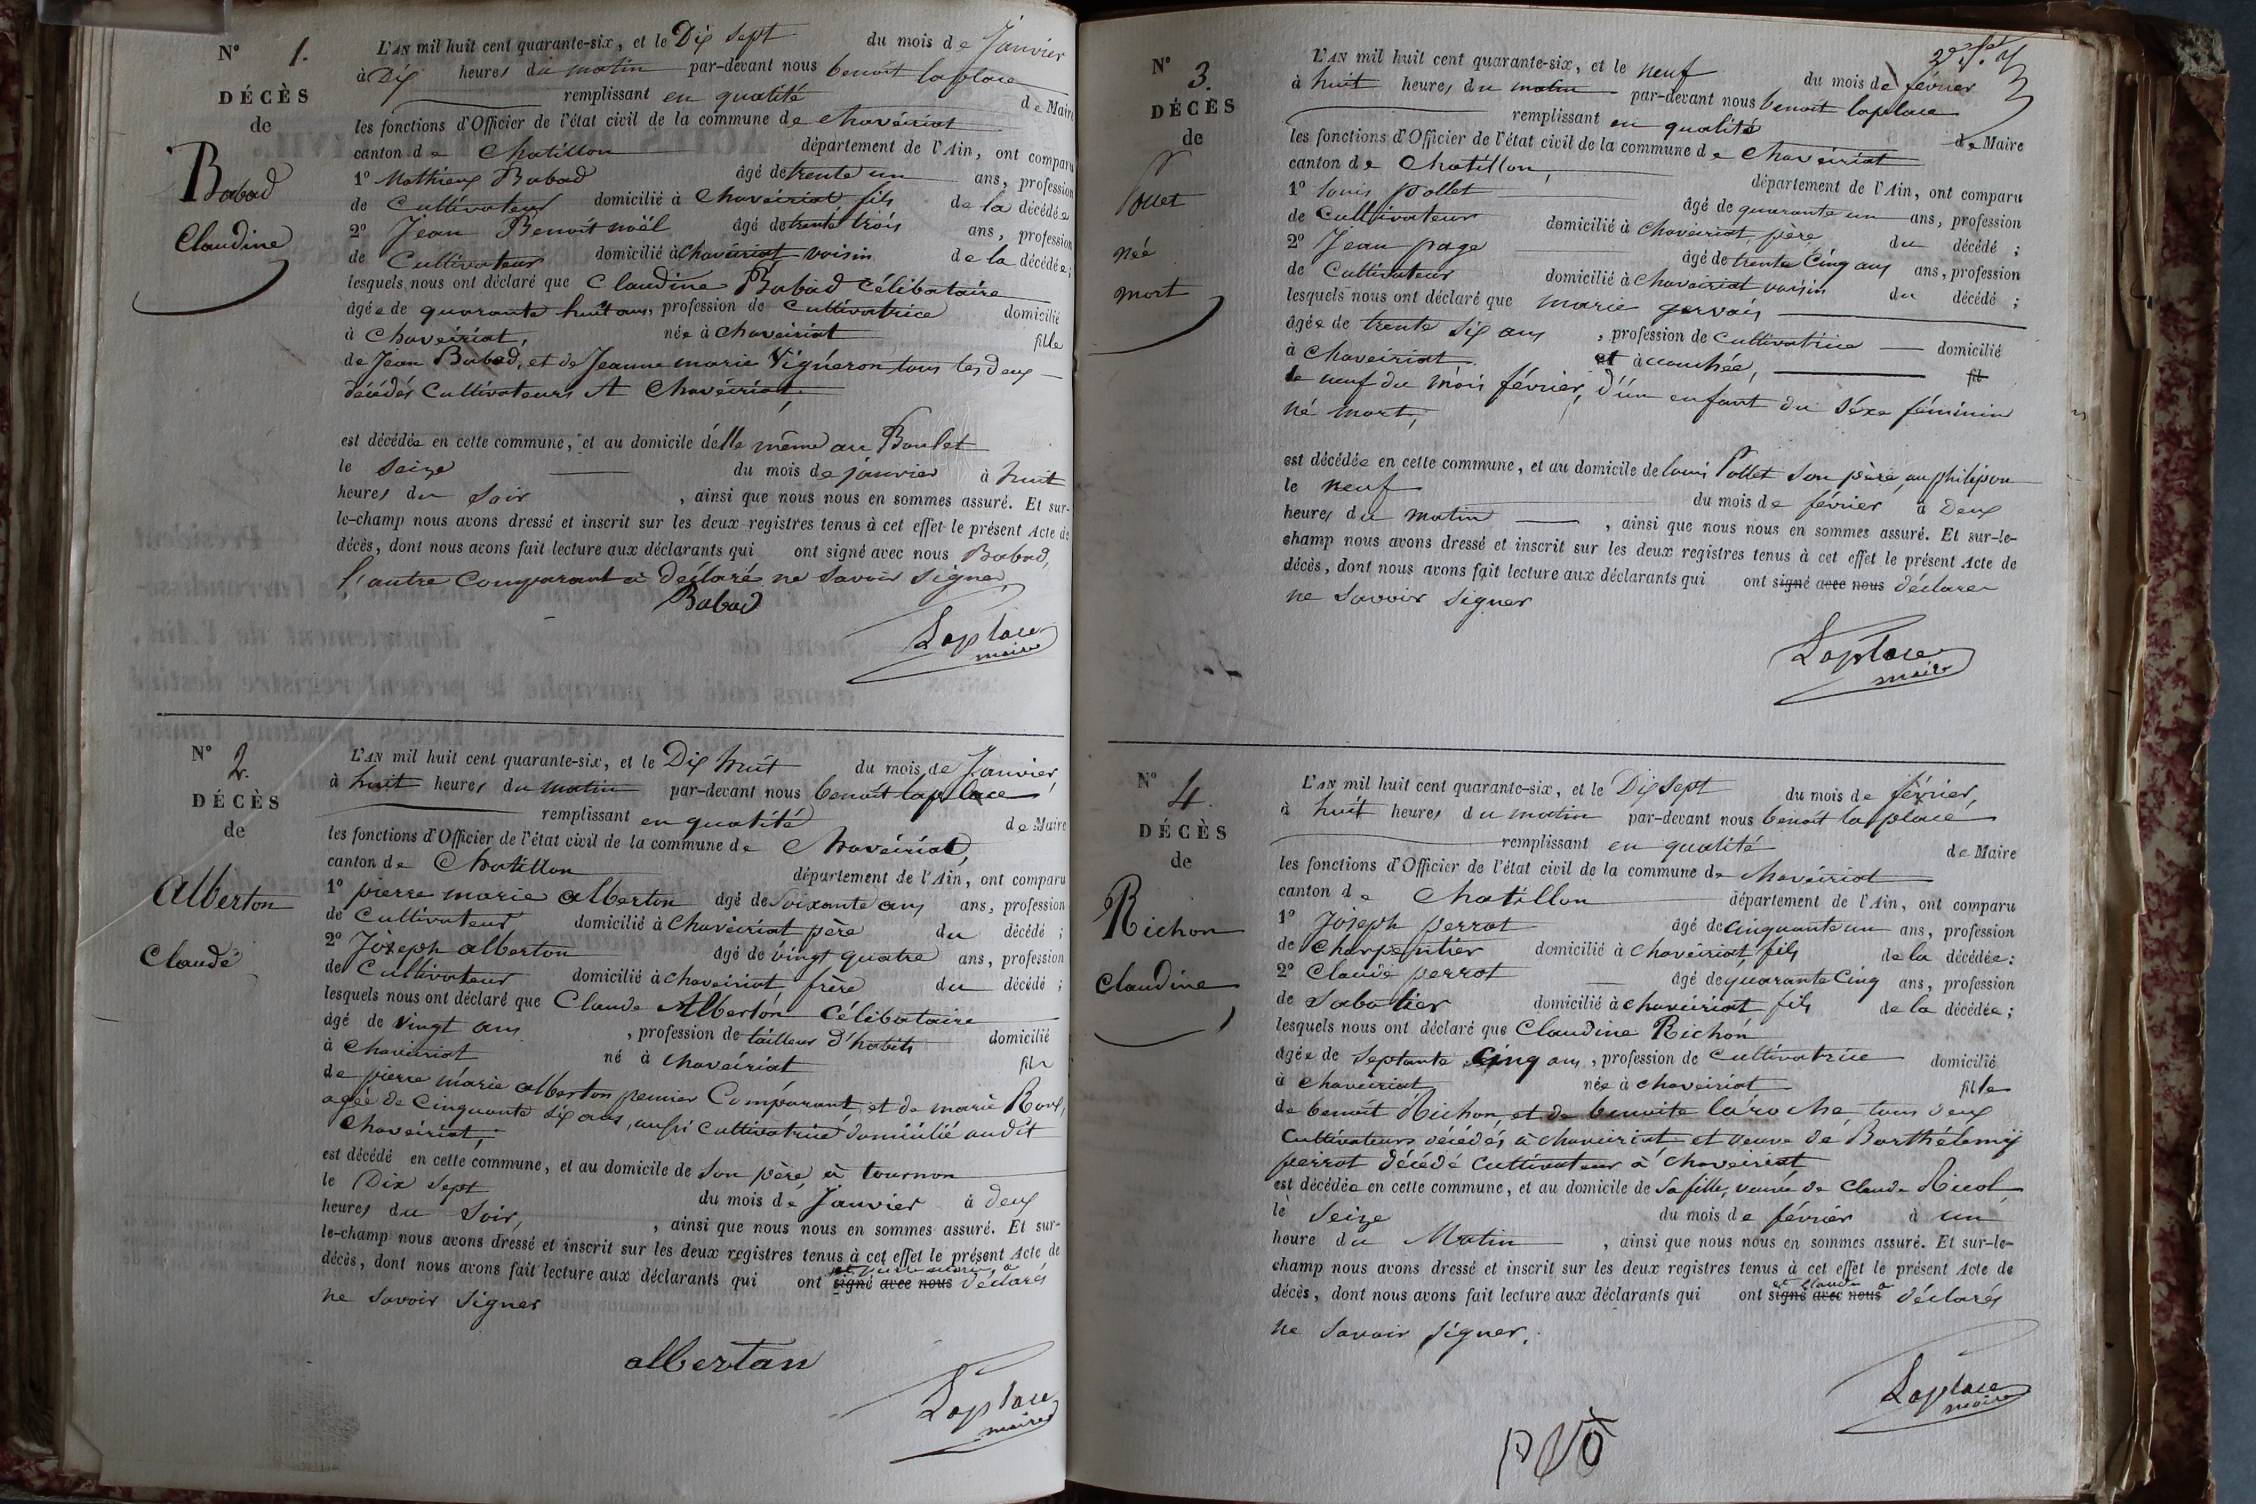 N° 1.
DÉCÈS
de
Babad
Claudine
L'AN mil huit cent quarante-six, et le Dix sept du mois de Janvier
à Dix heures du matin par-devant nous benoit laplace
remplissant en qualité de Maire
les fonctions d'Officier de l'état civil de la commune de chaveiriat
canton de Chatillon département de l'Ain, ont comparu
1° Mathieux Babad âgé de trente un ans, profession
de Cultivateur domicilié à Chaveiriat fils de la décédée
2° Jean Benoit noël âgé de trente trois ans, profession
de Cultivateur domicilié à chaveiriat voisin de la décédée;
lesquels nous ont déclaré que Claudine Babad célibataire
âgée de quarante huit ans, profession de Cultivatrice domicilié
à chaveiriat, née à chaveiriat fille
de Jean Babad, et de Jeanne marie Vignéron tous les deux
décédés Cultivateurs A Chaveiriat,
est décédée en cette commune, et au domicile d'elle même au Boulet
le Seize du mois de janvier à huit
heures du soir, ainsi que nous nous en sommes assuré. Et sur-
le-champ nous avons dressé et inscrit sur les deux registres tenus à cet effet le présent Acte de
décès, dont nous avons fait lecture aux déclarants qui ont signé avec nous Babad,
l'autre Comparant à déclaré ne savoir signer
Babad
Laplace
maire
N° 2.
DÉCÈS
de
Alberton
Claude
L'AN mil huit cent quarante-six, et le Dix huit du mois de Janvier,
à huit heures du matin par-devant nous benoit laplace,
remplissant en qualité de Maire
les fonctions d'Officier de l'état civil de la commune de Chaveiriat,
canton de Chatillon département de l'Ain, ont comparu
1° pierre marie alberton âgé de soixante ans ans, profession
de Cultivateur domicilié à Chaveiriat père du décédé;
2° Joseph alberton âgé de vingt quatre ans, profession
de Cultivateur domicilié à chaveiriat frère du décédé;
lesquels nous ont déclaré que Claude Alberton Célibataire
âgé de vingt ans, profession de tailleur d'habits domicilié
à chaveiriat né à chaveiriat fils
de pierre marie alberton premier Comparant, et de marie Roux,
agée de cinquante six ans, aussi cultivatrice domicilié audit
chaveiriat,
est décédé en cette commune, et au domicile de son père, à tournon
le Dix sept du mois de Janvier à deux
heures du soir, ainsi que nous nous en sommes assuré. Et sur-
le-champ nous avons dressé et inscrit sur les deux registres tenus à cet effet le présent Acte de
et pierre marie, a
décès, dont nous avons fait lecture aux déclarants qui ont signé avec nous déclarés
ne savoir signer
albertan
Laplace
maire
N° 3.
DÉCÈS
de
Pollet
né
mort
L'AN mil huit cent quarante-six, et le neuf du mois de février
à huit heures du matin par-devant nous benoit laplace
remplissant en qualité de Maire
les fonctions d'Officier de l'état civil de la commune de chaveiriat
canton de Chatillon, département de l'Ain, ont comparu
1° louis pollet âgé de quarante un ans, profession
de Cultivateur domicilié à Chaveiriat, père du décédé;
2° Jean page âgé de trente Cinq ans ans, profession
de Cultivateur domicilié à chaveiriat voisin du décédé;
lesquels nous ont déclaré que marie gervais
âgée de trente six ans, profession de cultivatrice domicilié
à chaveiriat et accouchée, fil
le neuf du mois février, d'un enfant du séxe féminin
né mort,
est décédée en cette commune, et au domicile de louis Pollet son père, au philipon
le neuf du mois de février à deux
heures du matin, ainsi que nous nous en sommes assuré. Et sur-le-
champ nous avons dressé et inscrit sur les deux registres tenus à cet effet le présent Acte de
décès, dont nous avons fait lecture aux déclarants qui ont signé avec nous déclarer
ne savoir signer
Laplace
maire
N° 4.
DÉCÈS
de
Richon
claudine
L'AN mil huit cent quarante-six, et le Dix sept du mois de février,
à huit heures du matin par-devant nous benoit laplace
remplissant en qualité de Maire
les fonctions d'Officier de l'état civil de la commune de chaveiriat
canton de Chatillon département de l'Ain, ont comparu
1° Joseph perrot âgé de cinquante un ans, profession
de charpentier domicilié à chaveiriat, fils de la décédée:
2° Claude perrot âgé de quarante Cinq ans, profession
de Sabotier domicilié à chaveiriat fils de la décédée;
lesquels nous ont déclaré que Claudine Richon
âgée de septante cinq ans, profession de cultivatrice domicilié
à chaveiriat née à chaveiriat fille
de benoit Richon, et de benoite laroche, tous deux
Cultivateurs décédés à chaveiriat et veuve de Barthélemy
perrot décédé cultivateur à chaveiriat
est décédée en cette commune, et au domicile de sa fille, veuve de Claude Ricol,
le seize du mois de février à un
heure du Matin, ainsi que nous nous en sommes assuré. Et sur-le-
champ nous avons dressé et inscrit sur les deux registres tenus à cet effet le présent Acte de
et claude a
décès, dont nous avons fait lecture aux déclarants qui ont signé avec nous déclarés
ne savoir signer.
Laplace
maire